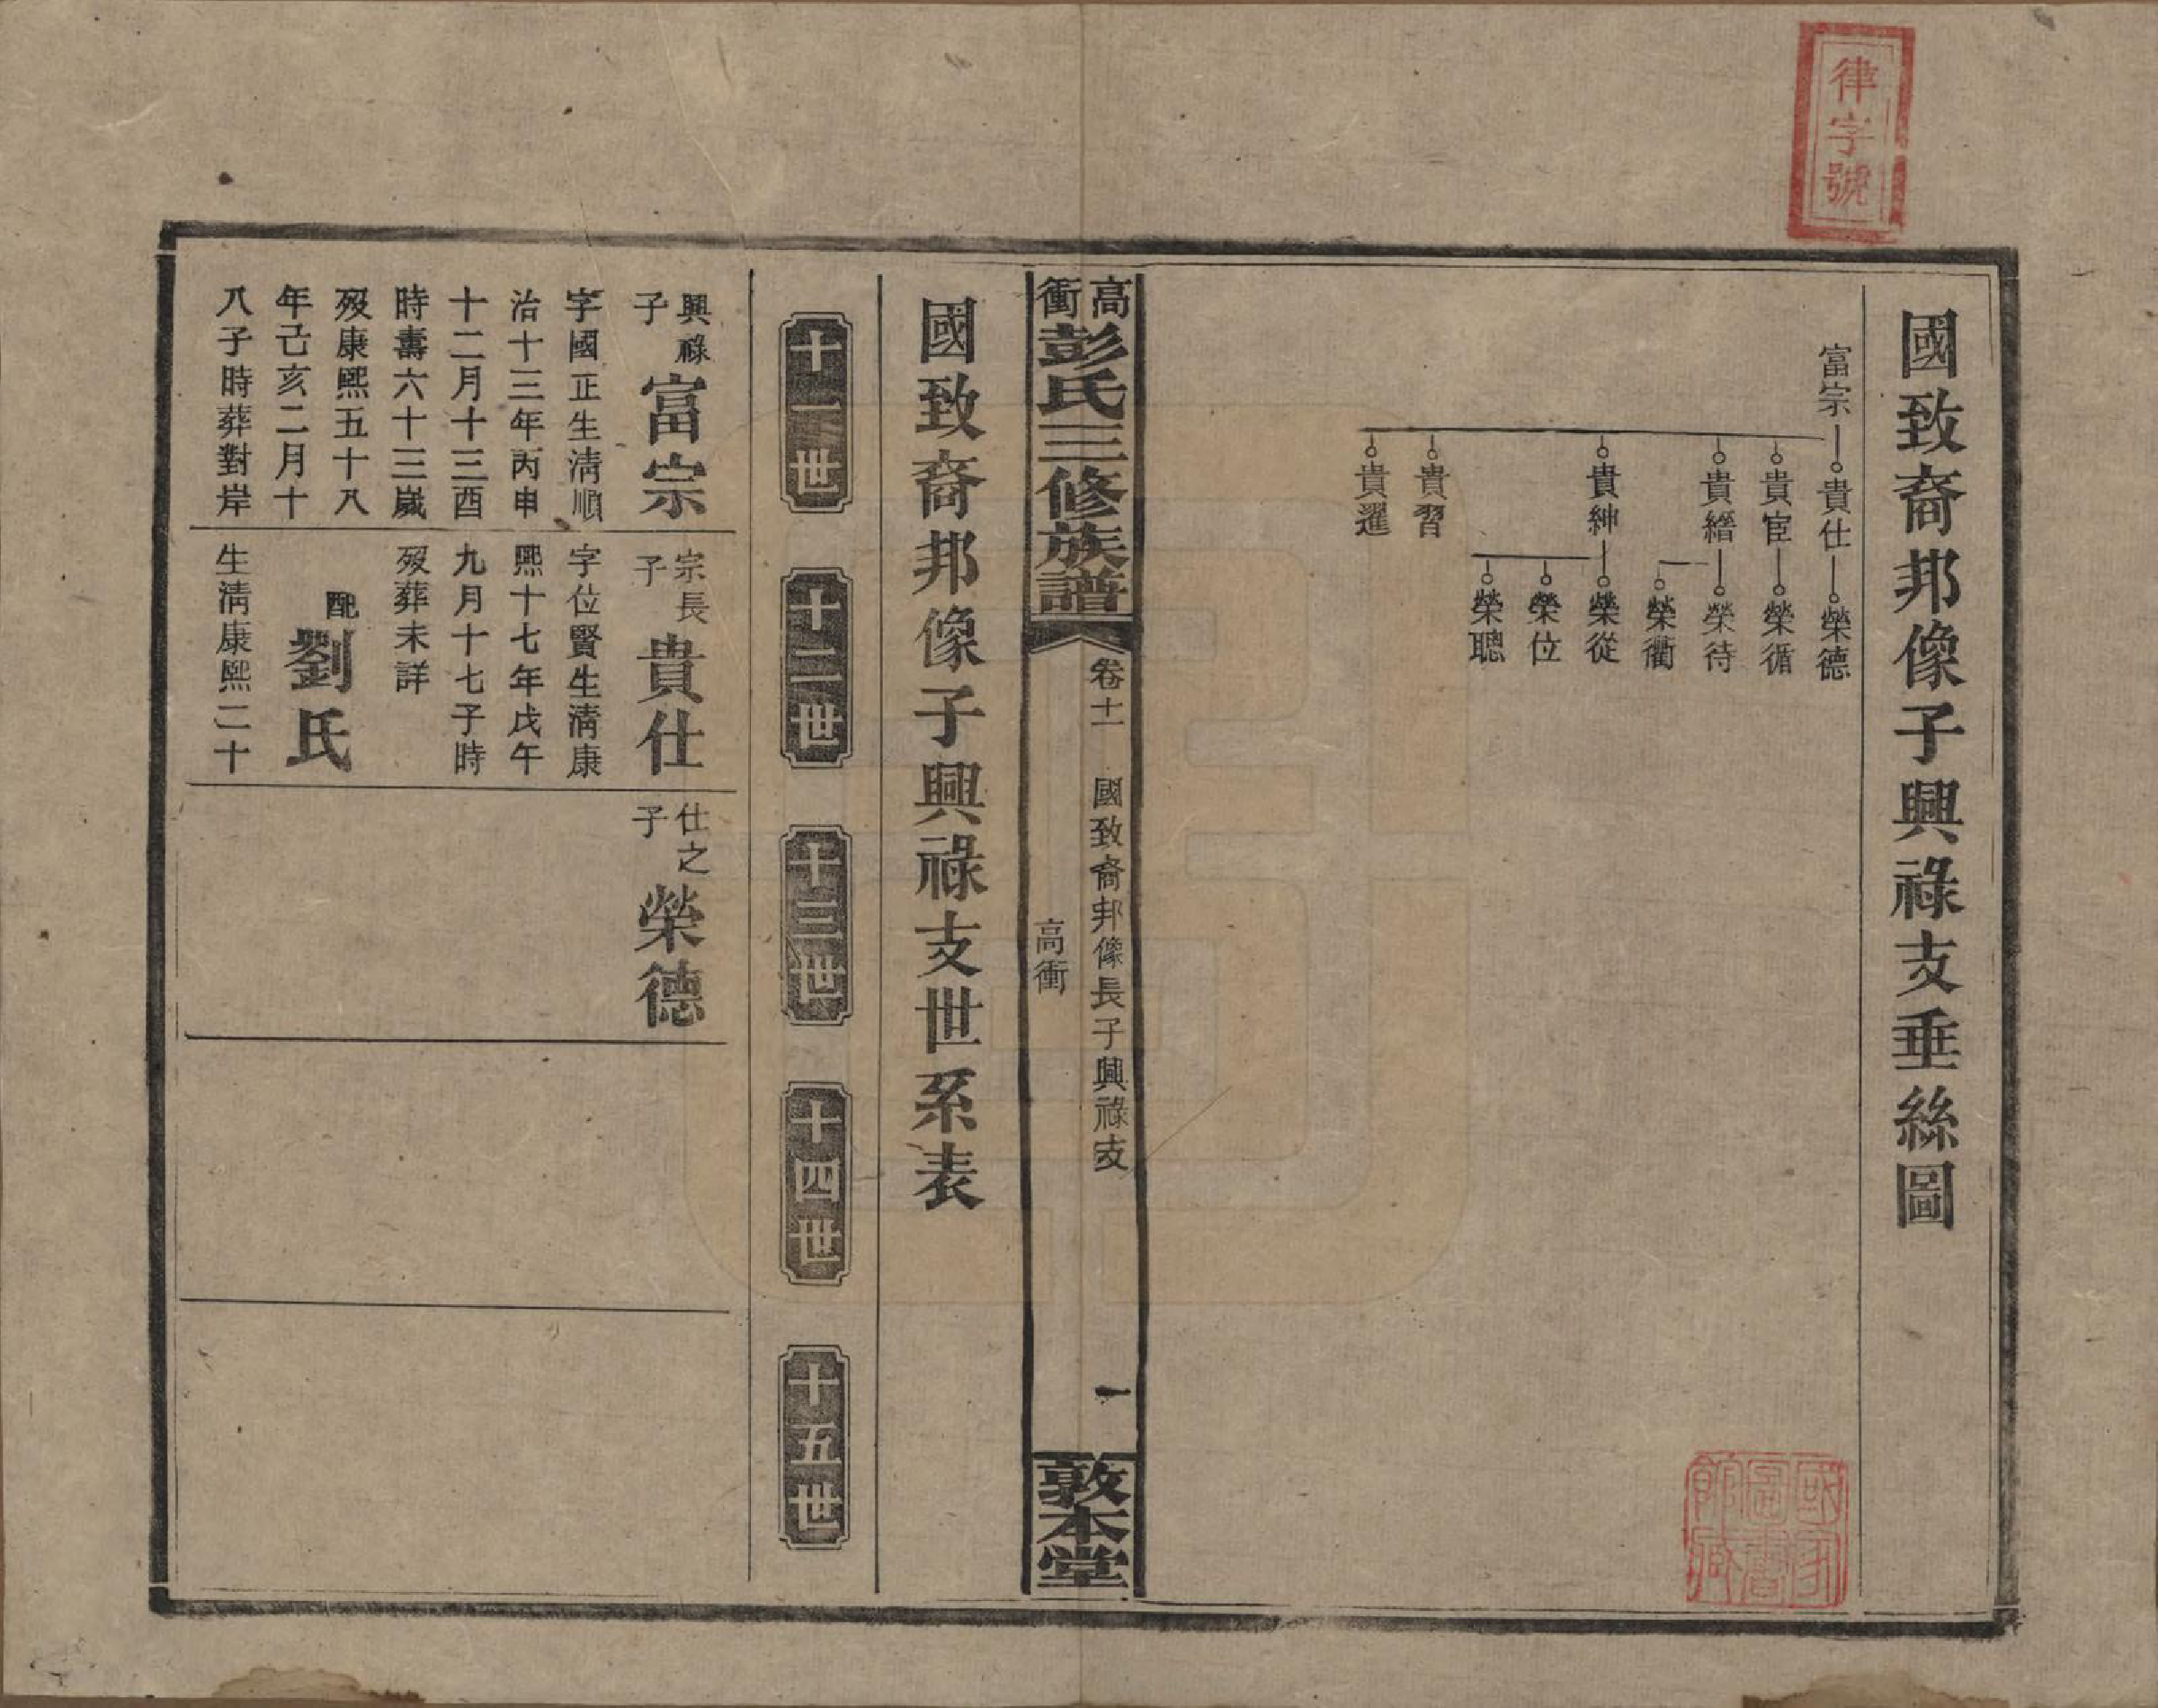 律字號
國致裔邦像子興祿支垂絲圖
富宗
貴仕
榮德
貴宦
榮循
貴縉
榮待
榮衢
貴紳
榮從
榮位
榮聰
貴習
貴暹
國家圖書館藏
高衝彭氏三修族譜
卷十一
國致裔邦像長子興祿支
高衝
一
敦本堂
國致裔邦像子興祿支世系表
十一世
十二世
十三世
十四世
十五世
興祿子
富宗
字國正生清順
治十三年丙申
十二月十三酉
時壽六十三歲
歿康熙五十八
年己亥二月十
八子時葬對岸
宗長子
貴仕
字位賢生清康
熙十七年戊午
九月十七子時
歿葬未詳
配劉氏
生清康熙二十
仕之子
榮德